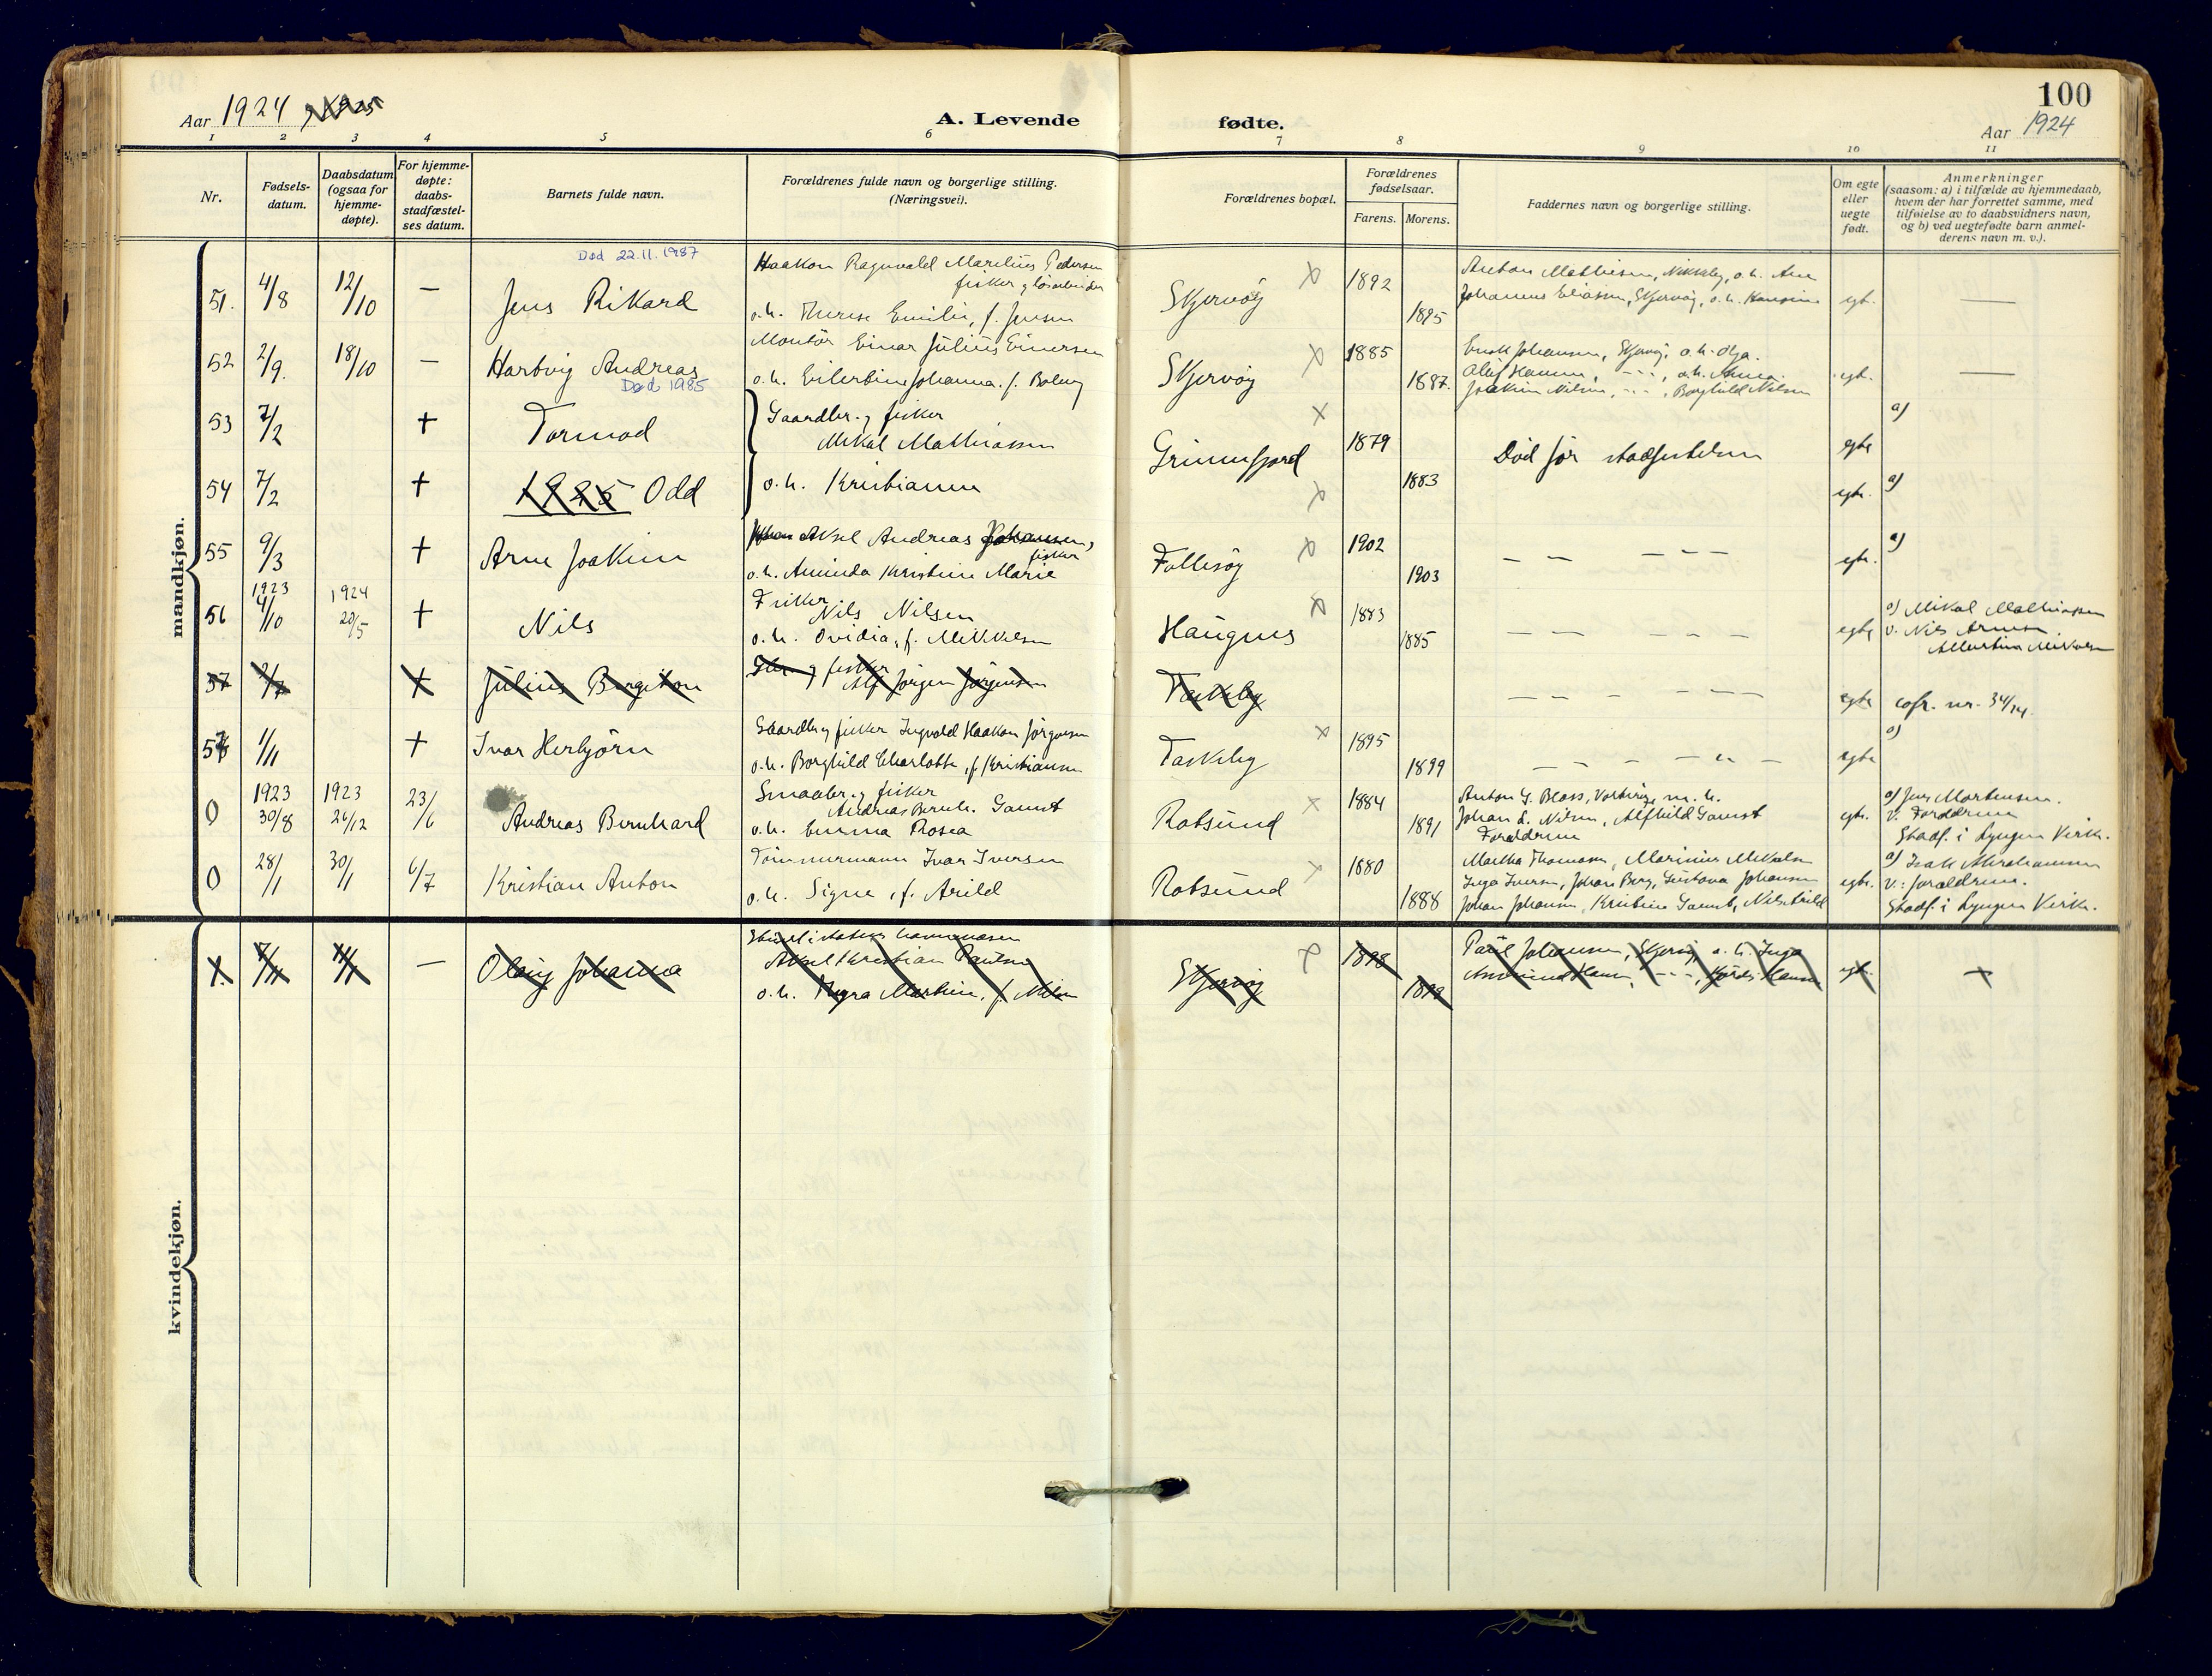 100
Aar 1924 og 1925
A. Levende fødte.
Aar 1924
1 2 3 4 5 6 7 8 9 10 11
Nr.
Fødsels-
datum.
Daabsdatum
(ogsaa for
hjemme-
døpte).
For hjemme-
døpte:
daabs-
stadfæstel-
ses datum.
Barnets fulde navn.
Forældrenes fulde navn og borgerlige stilling.
(Næringsvei).
Forældrenes bopæl.
Forældrenes
fødselsaar.
Farens. Morens.
Faddernes navn og borgerlige stilling.
Om egte
eller
uegte
født.
Anmerkninger
(saasom: a) i tilfælde av hjemmedaab,
hvem der har forrettet samme, med
tilføielse av to daabsvidners navn,
og b) ved uegtefødte barn anmel-
derens navn m. v.).
mandkjøn.
Død 22.11.1987
51. 4/8 12/10 — Jens Rikard
Haakon Ragnvald Marelius Pedersen
fisker og
o.h. Therese Emilie, f. Jensen
Skjervøy 1892 1895
Anton Mathisen, o.h.
Johannes Eliassen, Skjervøy, o.h. Hansine
egt. —
52 2/9. 18/10 — Hartvig Andreas
Død 1985
Montør Einar Julius Einersen
o.h. Eilertine Johanna f.
Skjervøy 1885 1887.
Johansen, Skjervøy, o.h. Olga.
Olaf Hansen, - - -, o.h. Anna.
Joakim Nilsen, - - -, Borghild Nilsen
egt. —
53 7/2 + Tormod
Gaardbr. og fisker
Mikal Mathiassen
Grunnfjord 1879
Død før stadfestelsen
egte a)
54 7/2 + 1925 Odd
o.h. Kristianne
1883 egte. a)
55 9/3 + Arne Joakim
Johan Aksel Andreas Johansen,
fisker
o.h. Aminda Kristine Marie
Follesøy 1902 1903
— — — — —
egte. a)
56 1923 4/10 1924 20/5 + Nils
Fisker
Nils Nilsen
o.h. Ovidia, f. Mikkelsen
Haugnes 1883 1885
— — — — —
egte a) Mikal Mathiassen
v. Nils Arnesen
Albertine Mikalsen
57 2/7 + Julius Bergiton
Gbr. og fisker
Alf Jørgen Jørgensen
Taskeby
— — — — —
egte cofr. nr. 34/14.
57 1/11 + Ivar Herbjørn
Gaardbr og fisker Ingvald Haakon Jørgensen
o.h. Borghild Charlotte, f. Kristiansen
Taskeby 1895 1899
— — — — —
egte a)
0 1923 30/8 1923 26/12 23/6 Andreas Bernhard
Smaabr. og fisker
Andreas Bernh. Gamst
o.h. Emma Rosea
Rotsund 1884 1891
Johan L. Nilsen, Alfhild Gamst
Forældrene
egte. a) Jens Mortensen.
v. Forældrene
Stadf. i Lyngen Kirke.
0 28/1 30/1 6/7 Kristian Anton
Tømmermann Ivar Iversen
o.h. Signe, f. Arild
Rotsund 1880 1888
Martha Thomassen, Marinius Mikalsen
Inga Iversen, Johan Berg, Gustava Johansen
Johan Johansen, Kristine Gamst, Nils Arild
egte. a) Isak Abrahamsen
v.: forældrene.
Stadf. i Lyngen Kirke.
kvindekjøn.
— Olaug Johanna
Aksel Kristian Paulsen
o.h. Thyra Martine, f. Nilsen
Skjervøy 1898 1899
Paul Johansen, Skjervøy, o.h. Inga
Hansen, - - -, Hjørdis Hansen
egt.